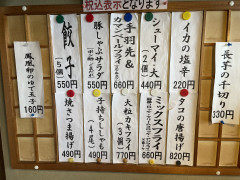 税込表示となります
長芋の千切り
330円
イカの塩辛
220円
シューマイ大
(2個)
440円
手羽先&
カマンベールフライ
550円
豚しゃぶサラダ
550円
餃子
(5個)
550円
タコの唐揚げ
820円
ミックスフライ
660円
大粒カキフライ
(3個)
770円
子持ちししゃも
(4尾)
490円
焼さつま揚げ
490円
鳳凰卵のゆで玉子
160円